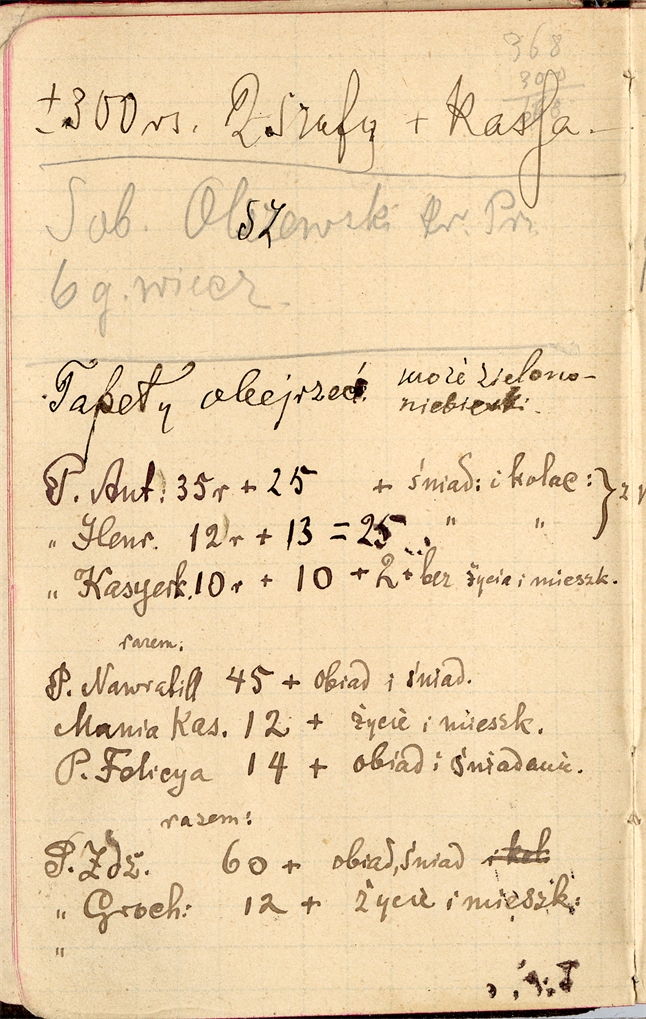 368
300
±300 rs. 2 szafy + kassa.
Sob. Olszewski kr. Prz.
sz
6 g. wiecz.
Tapety obejrzeć może zielono-
niebieski.
P. Ant: 35 r + 25 + śniad: i kolac:
„ Henr. 12 r + 13 = 25 „ „
„ Kasyerk. 10 r + 10 + 2 + bez życia i mieszk.
razem:
P. Nawratill 45 + obiad i śniad.
Mania Kas. 12 + życie i mieszk.
P. Felicya 14 + obiad i śniadanie.
razem:
P. Zdz. 60 + obiad, śniad i kol
„ Groch: 12 + życie i mieszk:
„